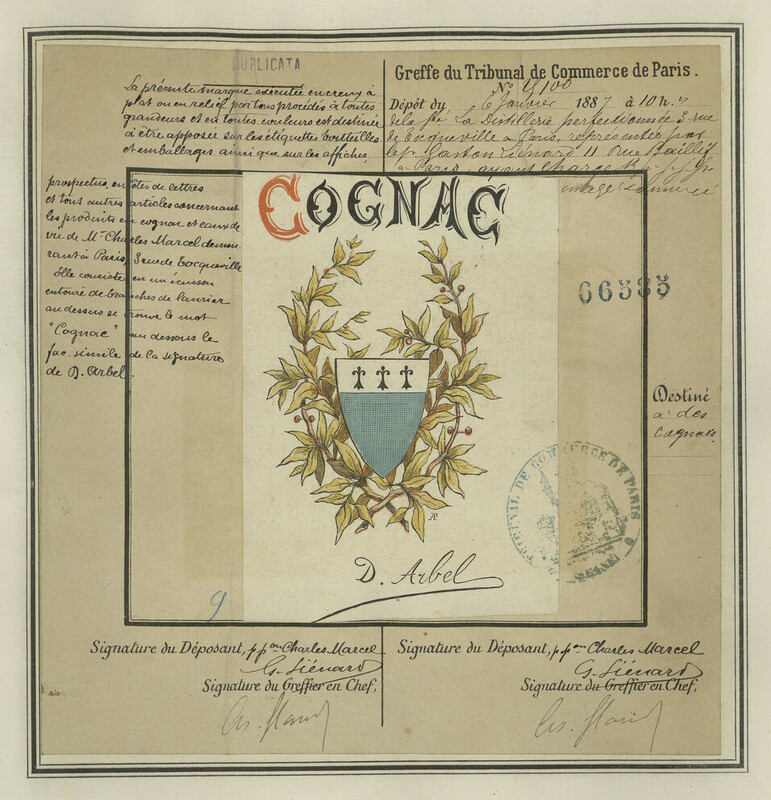 DUPLICATA
La présente marque executée en creux à
plat ou en relief par tous procédés à toutes
grandeurs et en toutes couleurs est destinée
à être apposée sur les étiquettes bouteilles
et emballages ainsi que sur les affiches,
prospectus, en têtes de lettres
et tous autres articles concernant
les produits en cognac et eaux de
vie de Mr Charles Marcel demeu
rant à Paris, 3 rue de Tocqueville
Elle consiste en un écusson
entouré de branches de laurier
au dessus se trouve le mot
"Cognac" au dessous le
fac-simile de la signature
de D. Arbel.
Greffe du Tribunal de Commerce de Paris.
No 100
Dépôt du 6 Janvier 1887 à 10 h
de la Sté La Distillerie perfectionnée 3 rue
de Tocqueville à Paris, représentée par
le Sr Gaston Liénard 11 Rue Bailli
Paris, ayant charge
COGNAC
66585
Destiné
à des
Cognacs
TRIBUNAL DE COMMERCE DE PARIS
(SEINE)
AP
D. Arbel
9
Signature du Déposant, p pon Charles Marcel
G. Liénard
Signature du Greffier en Chef,
Signature du Déposant, p pon Charles Marcel
G. Liénard
Signature du Greffier en Chef,